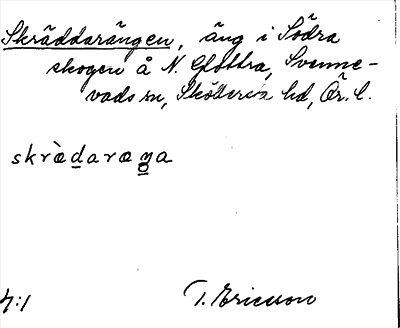 Skräddarängen, äng i Södra
skogen å N. Glottra, Svenne-
vads sn, Sköllersta hd, Ör. l.
skrædaræŋa
4:1
T. Ericsson